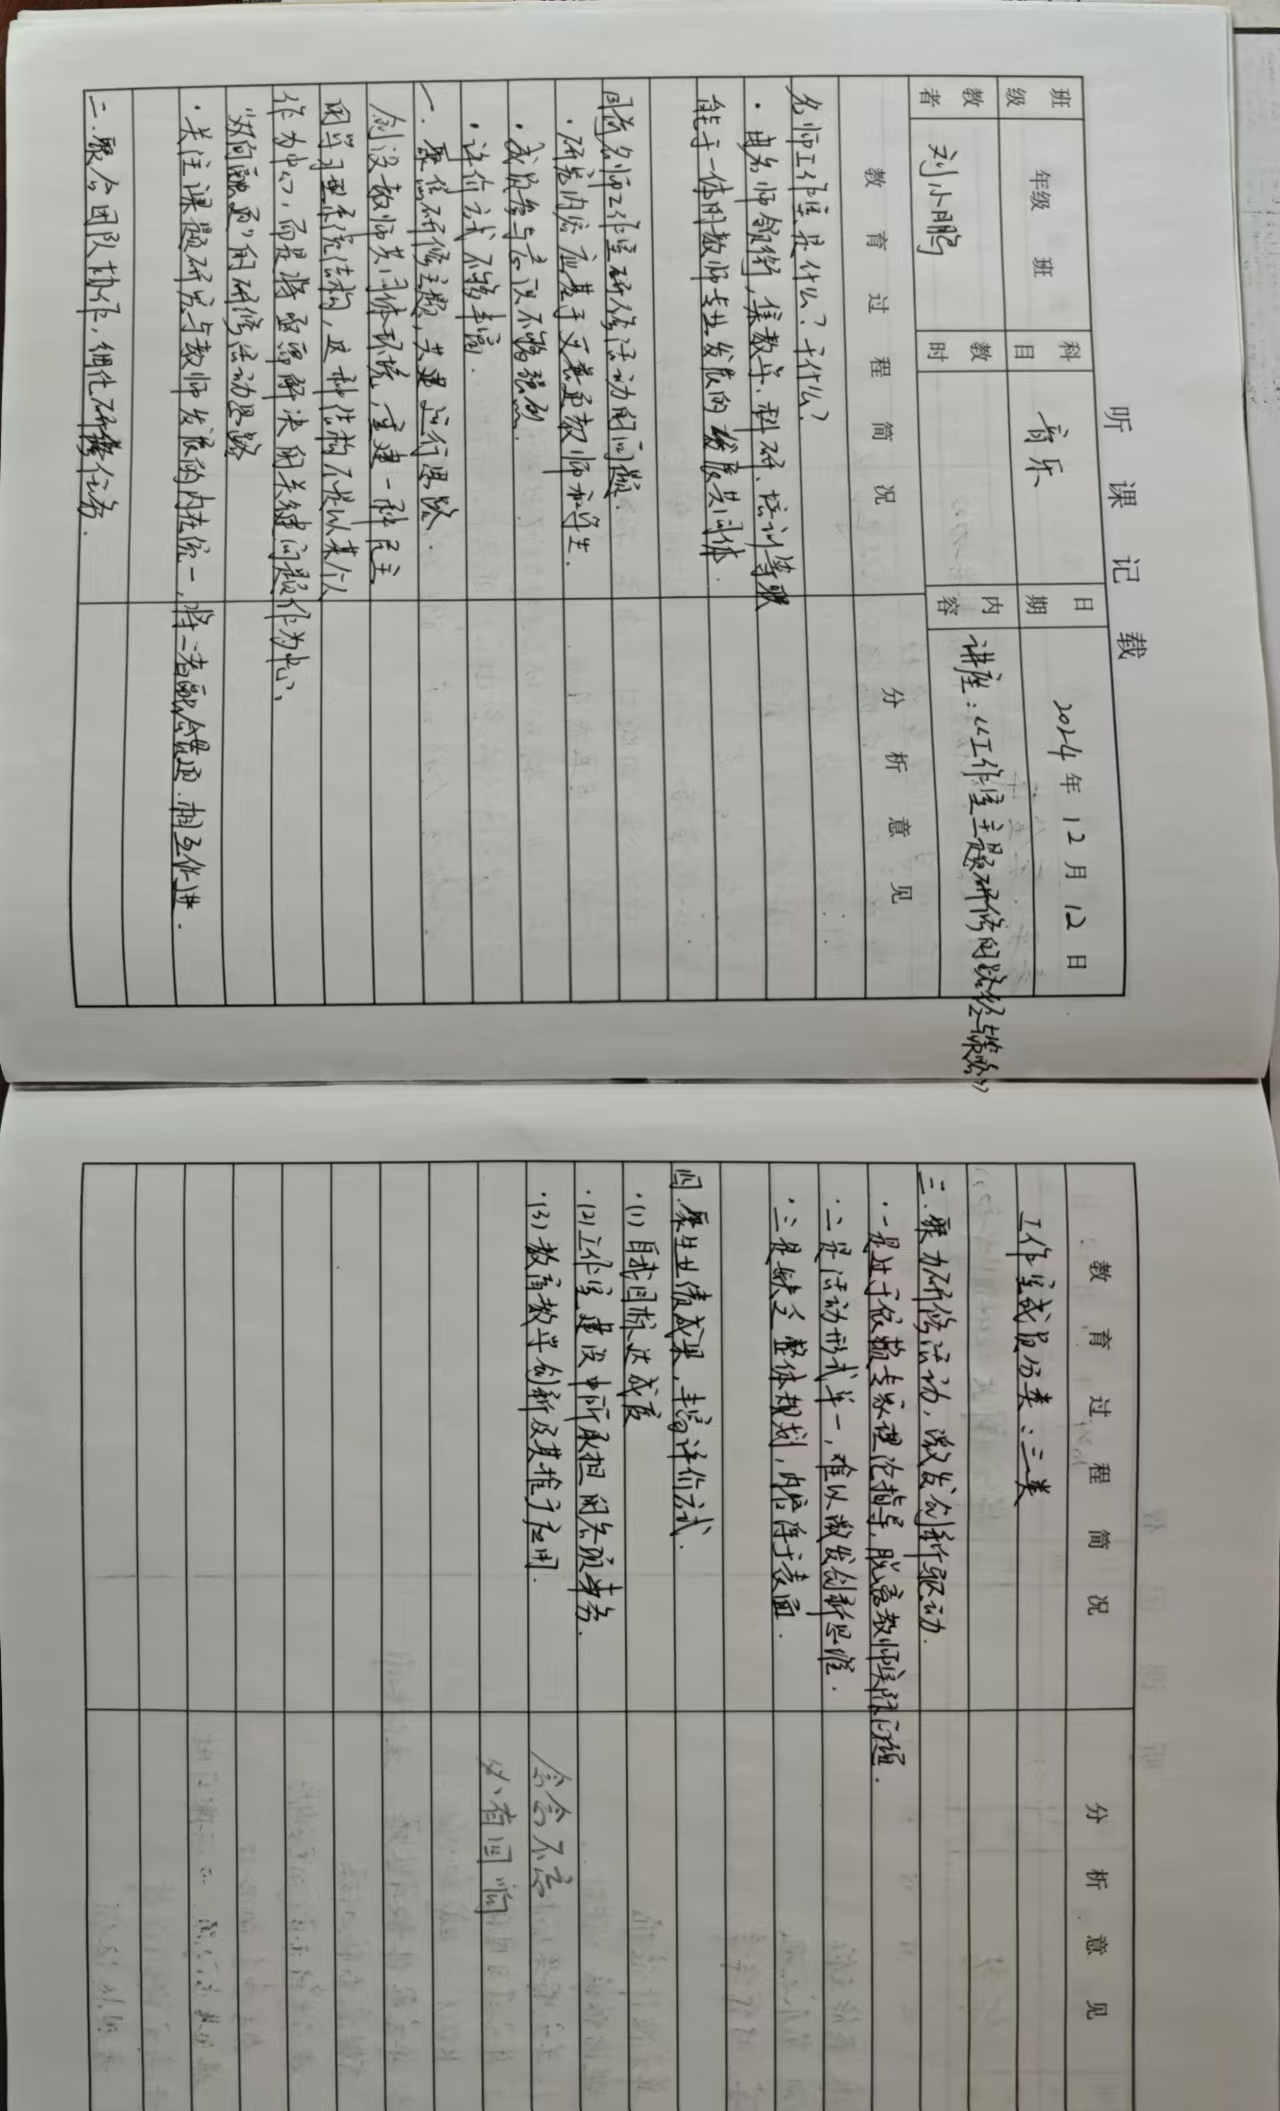 听课记载
班级 年级 班 科目 音乐 日期 2024年12月12日
教者 刘小鹏 教时 内容 讲座：《工作室主题研修的路径与策略》
教育过程简况 分析意见
名师工作室是什么？干什么？
·由名师领衔，集教学、科研、培训等职
能于一体的教师专业发展的发展共同体.
目前名师工作室研修活动的问题.
·研究内容应基于又着重教师和学生.
·成员参与意识不够强烈.
·评价方式不够丰富.
一.聚焦研修主题，共建运行思路.
创设教师共同体环境，重建一种民主
的学习型系统结构，这种结构不是以某个人
作为中心，而是将亟需解决的关键问题作为中心.
“双向融通”的研修活动思路
·关注课题研究与教师发展的内在统一，将二者融会贯通.相互促进.
二.聚合团队协作，细化研修任务.
教育过程简况 分析意见
工作室成员分类：三类
三.聚力研修活动，激发创新驱动.
·一是过于依赖专家理论指导，脱离教师实际问题.
·二是活动形式单一，难以激发创新思维.
·三是缺乏整体规划，内容浮于表面.
四.聚生业绩成果，丰富评价方式.
·(1)自我目标达成度
·(2)工作室建设中所承担的各项事务.
·(3)教育教学创新及其推广应用.
念念不忘
必有回响